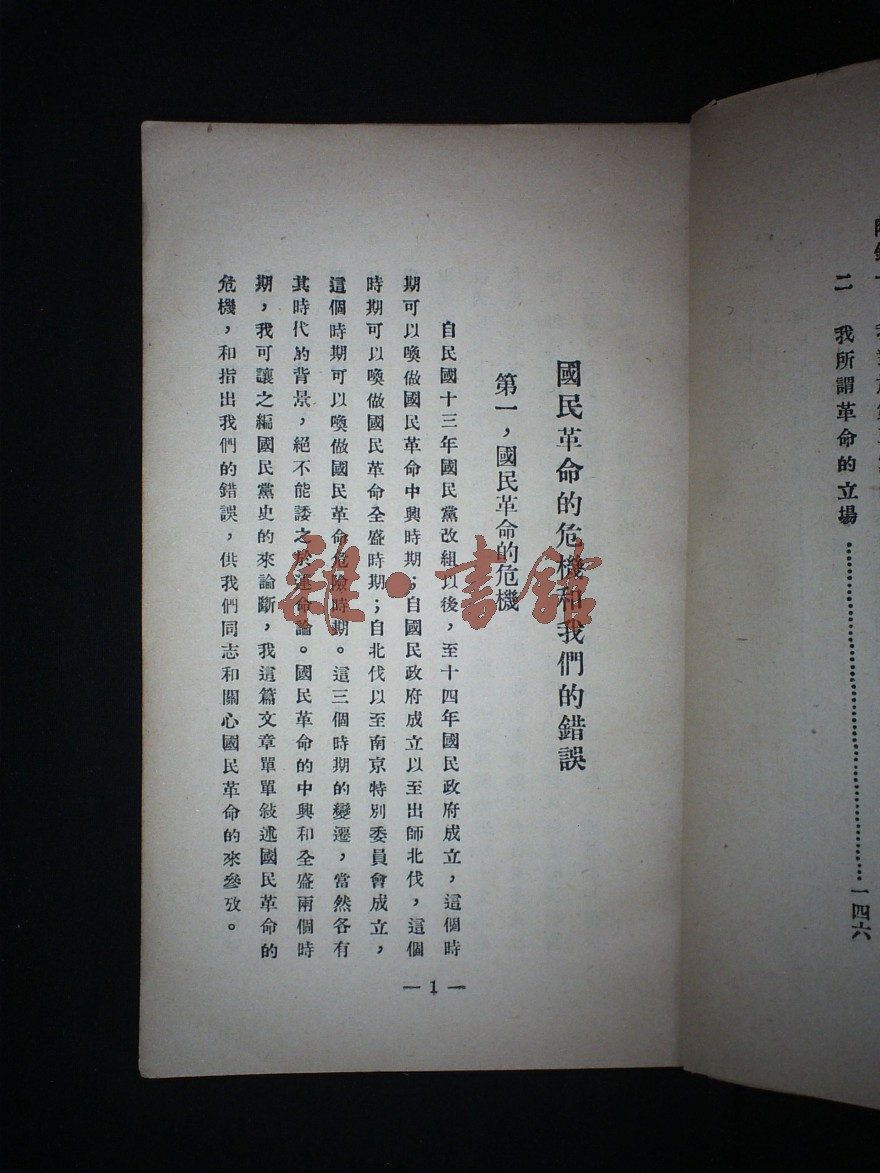 二　我所謂革命的立場…………………………一四六
國民革命的危機和我們的錯誤
第一，國民革命的危機
自民國十三年國民黨改組以後，至十四年國民政府成立，這個時
期可以喚做國民革命中興時期；自國民政府成立以至出師北伐，這個
時期可以喚做國民革命全盛時期；自北伐以至南京特別委員會成立，
這個時期可以喚做國民革命危險時期。這三個時期的變遷，當然各有
其時代的背景，絕不能諉之於運命論。國民革命的中興和全盛兩個時
期，我可讓之編國民黨史的來論斷，我這篇文章單單敍述國民革命的
危機，和指出我們的錯誤，供我們同志和關心國民革命的來參攷。
— 1 —
雜·書館